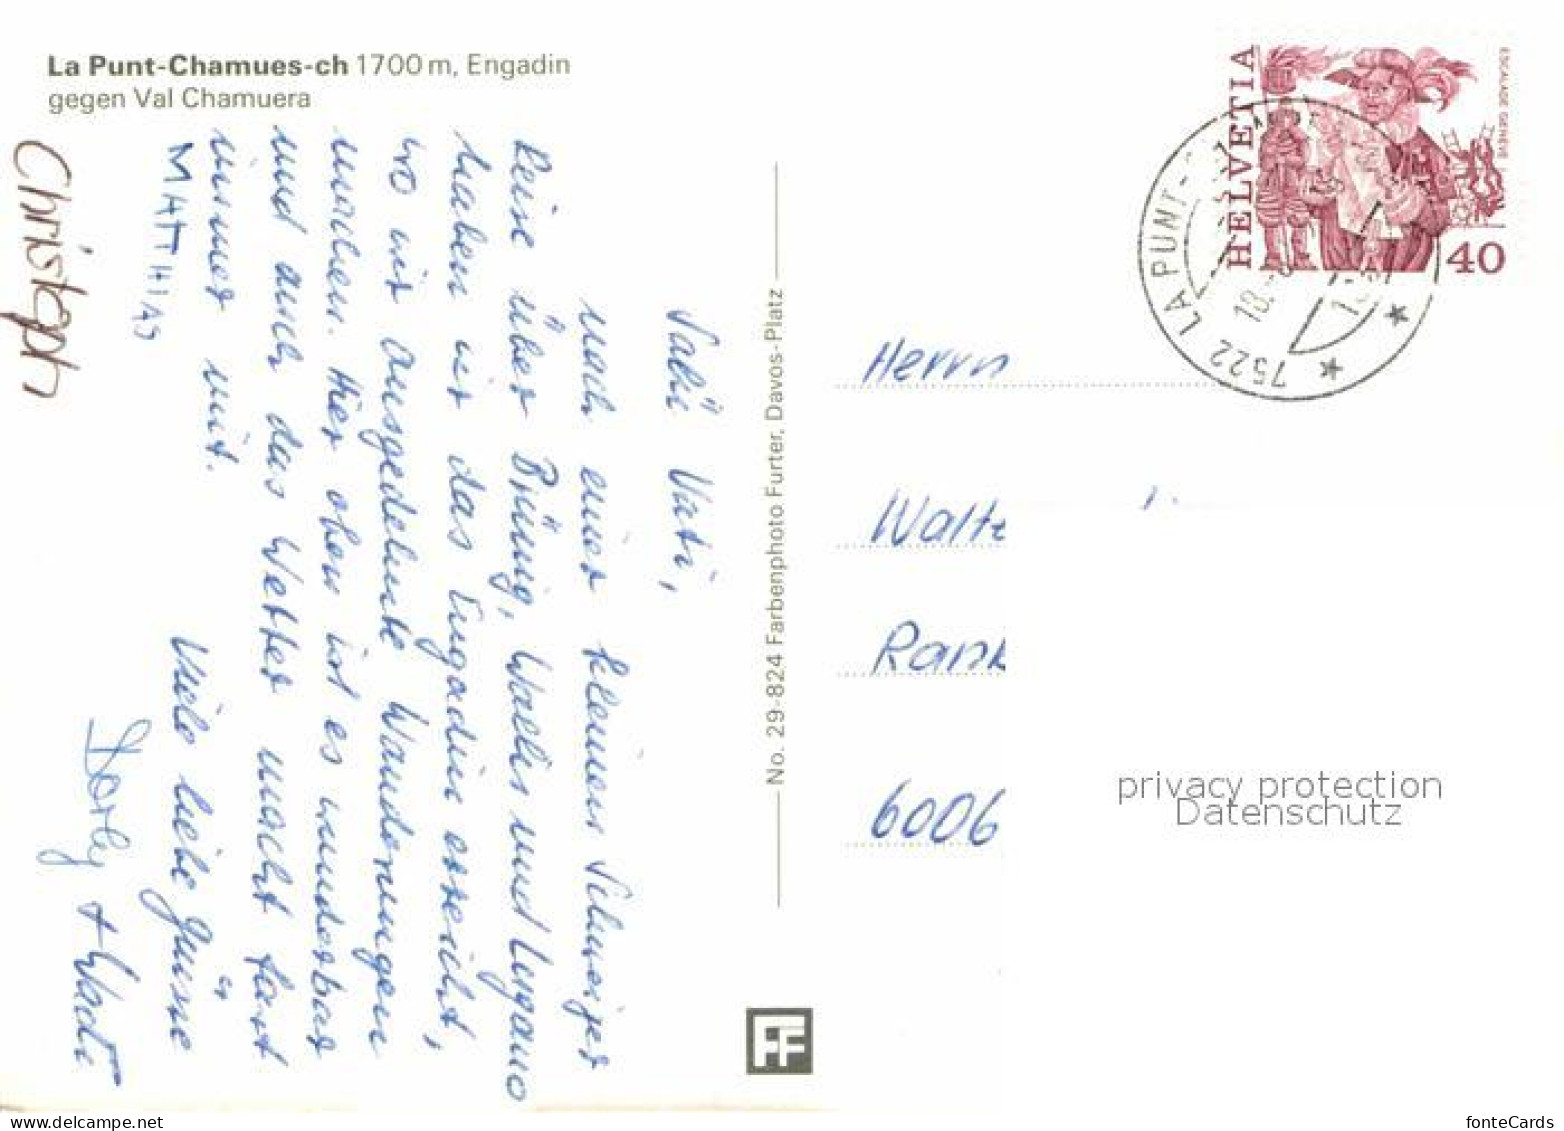 La Punt-Chamues-ch 1700 m, Engadin
gegen Val Chamuera
Salü Vati,
nach einer kleinen Schweizer
Reise über Brünig, Wallis und Lugano
haben wir das Engadin erreicht,
wo wir ausgedehnte Wanderungen
machen. Hier oben ist es wunderbar
und auch das Wetter macht fast
immer mit.
Viele liebe Grüsse
MATTHIAS
Christoph
No. 29-824 Farbenphoto Furter, Davos-Platz
FF
HELVETIA
ESCALADE GENÈVE
40
7522 LA PUNT-
18.
Herrn
Walte
Rank
6006
privacy protection
Datenschutz
www.delcampe.net
fonteCards